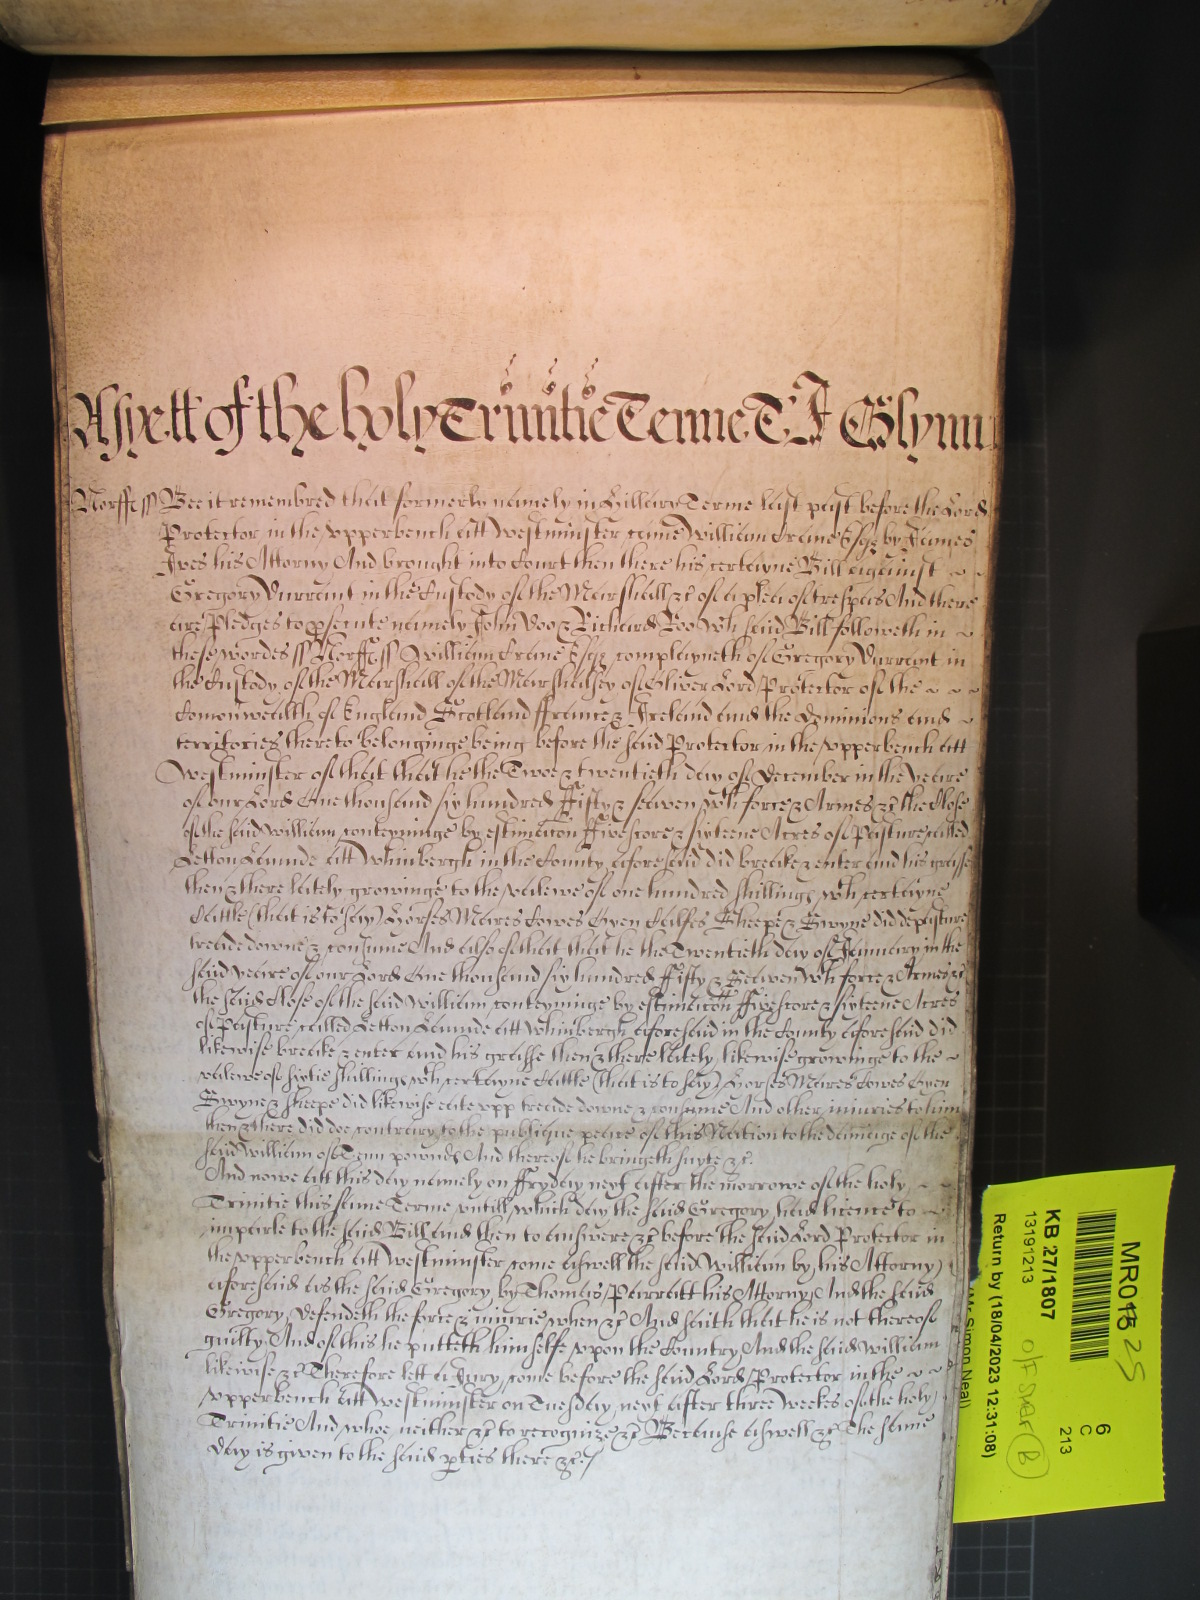 Aspett of the holy Trinitie Terme T I Glynn
Norff ss Bee it remembred that formerly namely in Hillary Terme last past before the Lord
Protector in the vpperbench att Westminster came William Crane Esqr by James
Ives his Attorny And brought into Court then there his certayne Bill against
Gregory Durrant in the Custody of the Marshall &c of a plea of trespas And there
are Pledges to prosecute namely John Doo & Richard Roo wch said Bill followeth in
these wordes ss Norff ss William Crane Esqr complayneth of Gregory Durrant in
the Custody of the Marshall of the Marshalsey of Oliver Lord Protector of the
Comonwealth of England Scotland ffrance & Ireland and the Dominions and
territories thereto belonginge being before the said Protector in the vpperbench att
Westminster of that that he the Twoe & twentieth day of December in the yeare
of our Lord One thousand six hundred ffifty & seaven wth force & Armes &c the Close
of the said William conteyninge by estimacon ffivescore & sixteene Acres of Pasture called
Letton Launde att Whinbergh in the County aforesaid did breake & enter and his grasse
then & there lately growinge to the valewe of one hundred shillings wth certayne
Cattle (that is to say) Horses Mares Cowes Oxen Calfes Sheepe & Swyne did depasture
treade downe & consume And also of that that he the Twentieth day of January in the
said yeare of our Lord One thousand six hundred ffifty & Seaven wth force & Armes &c
the said Close of the said William conteyninge by estimacon ffivescore & sixteene Acres
of Pasture called Letton Launde att Whinbergh aforesaid in the County aforesaid did
likewise breake & enter and his grasse then & there lately likewise growinge to the
valewe of sixtie shillings wth certayne Cattle (that is to say) Horses Mares Cowes Oxen
Swyne & sheepe did likewise eate vpp treade downe & consume And other iniuries to him
then & there did doe contrary to the publique peace of this Nation to the damage of the
said William of Tenn pownds And thereof he bringeth suyte &c.
And nowe att this day namely on ffryday next after the morrowe of the holy
Trinitie this same Terme vntill which day the said Gregory had licence to
imparle to the said Bill and then to answere &c before the said Lord Protector in
the vpperbench att Westminster come aswell the said William by his Attorny
aforesaid as the said Gregory by Thomas Parratt his Attorny And the said
Gregory Defendeth the force & iniurie when &c And saith that he is not thereof
guilty And of this he putteth himselfe vpon the Country And the said William
likewise &c Therefore lett a Jury come before the said Lord Protector in the
vpperbench att Westminster on Tuesday next after three weekes of the holy
Trinitie And whoe neither &c to recognize &c Because aswell &c The same
day is given to the said pties there &c
MR018 25
6
C
213
KB 27/1807
13191213
Return by (18/04/2023 12:31:08)
(Mr Simon Neal)
B